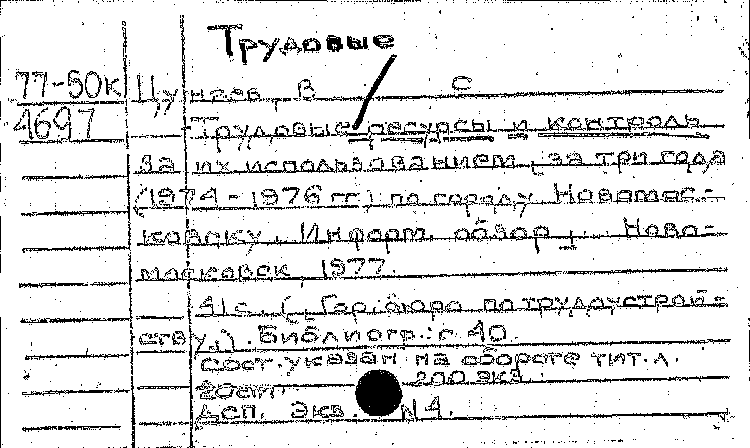 Трудовые
77-50к Цунаев, В С
4697 Трудовые ресурсы и контроль
за их использованием, за три года
(1974-1976 гг.) по городу Новомос-
ковску. Информ. обзор. Ново-
московск, 1977.
41с. (Гор. бюро по трудоустрой-
ству.). Библиогр.: с. 40.
Сост. указан на обороте тит. л.
20см. 200 экз.
ДСП. Экз. N4.